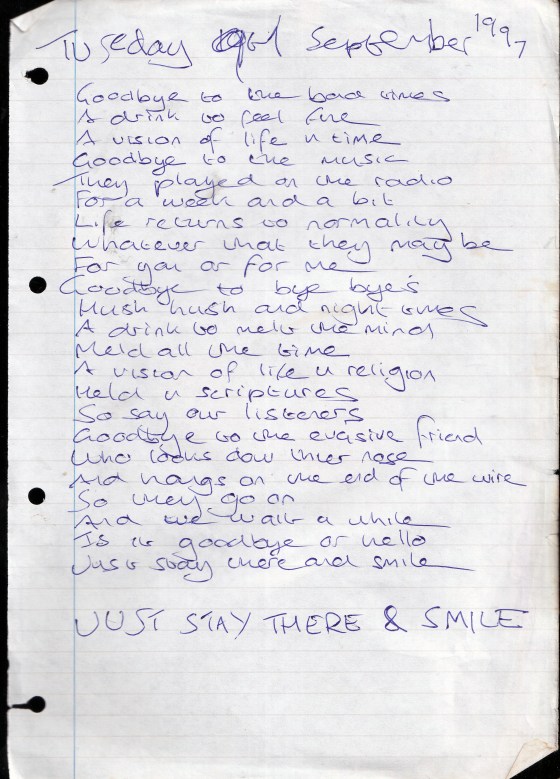 Tuseday 9th September 1997
Goodbye to the bad times
A drink to feel fine
A vision of life n time
Goodbye to the music
They played on the radio
For a week and a bit
Life returns to normality
Whatever that they may be
For you or for me
Goodbye to bye bye's
Hush hush and night times
A drink to melt the mind
Meld all the time
A vision of life n religion
Held n scriptures
So say our listeners
Goodbye to the evasive friend
Who looks down their nose
And hangs on the end of the wire
So they go on
And we wait a while
Is it goodbye or hello
Just stay there and smile
JUST STAY THERE & SMILE